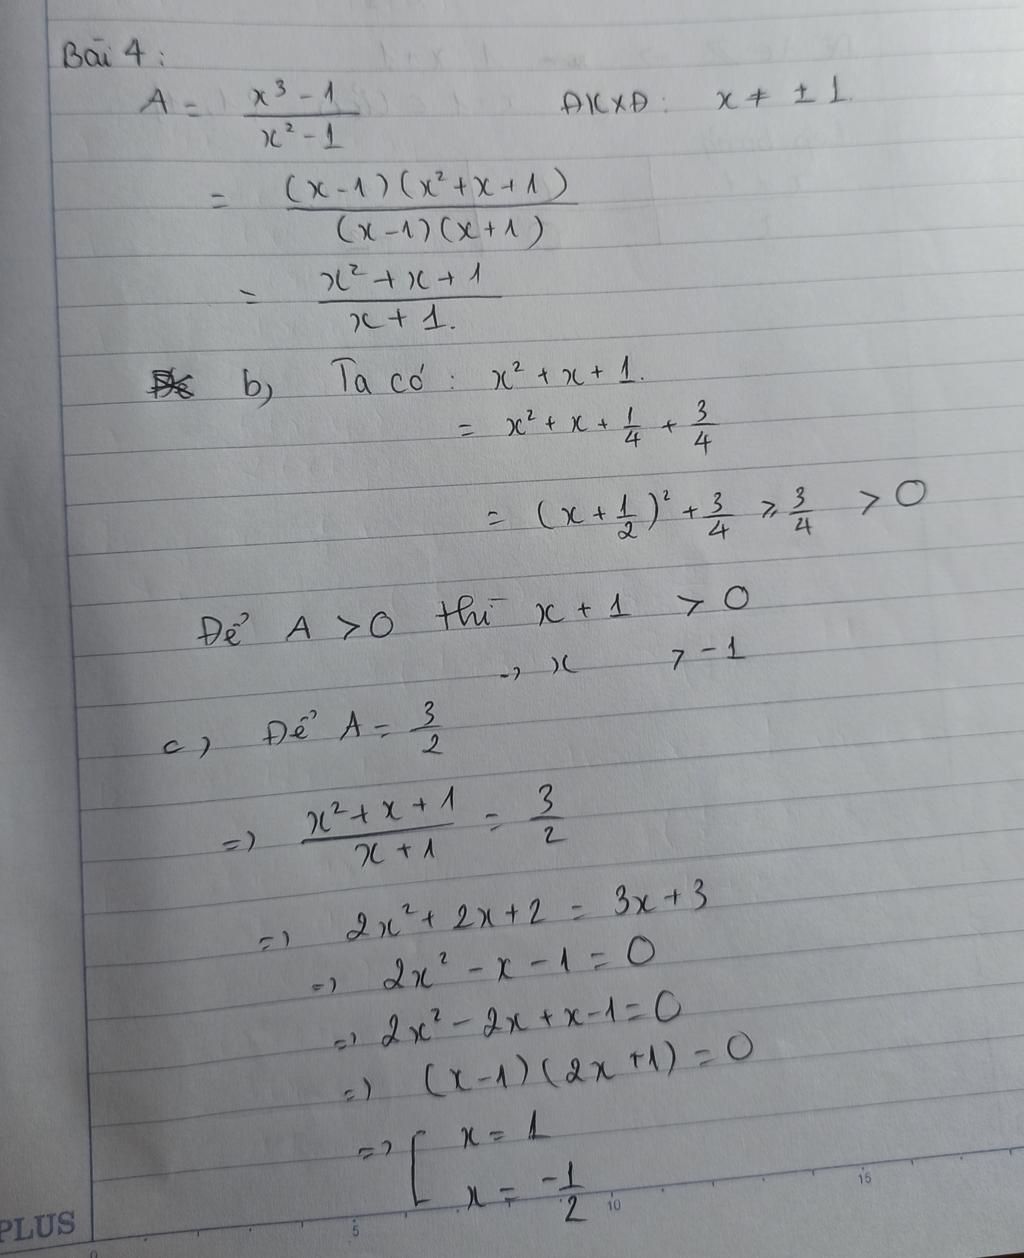 Bài 4 :
A = (x³ - 1)/(x² - 1) ĐKXĐ : x ≠ ± 1.
= ((x-1)(x²+x+1))/((x-1)(x+1))
= (x²+x+1)/(x+1.)
b, Ta có : x² + x + 1.
= x² + x + 1/4 + 3/4
= (x + 1/2)² + 3/4 ⩾ 3/4 > 0
Để A > 0 thì x + 1 > 0
-> x > -1
c) Để A = 3/2
=> (x² + x + 1)/(x + 1) = 3/2
=> 2x² + 2x + 2 = 3x + 3
=> 2x² - x - 1 = 0
=> 2x² - 2x + x - 1 = 0
=> (x-1)(2x+1) = 0
=> [ x = 1
x = -1/2
5 10 15
PLUS
0